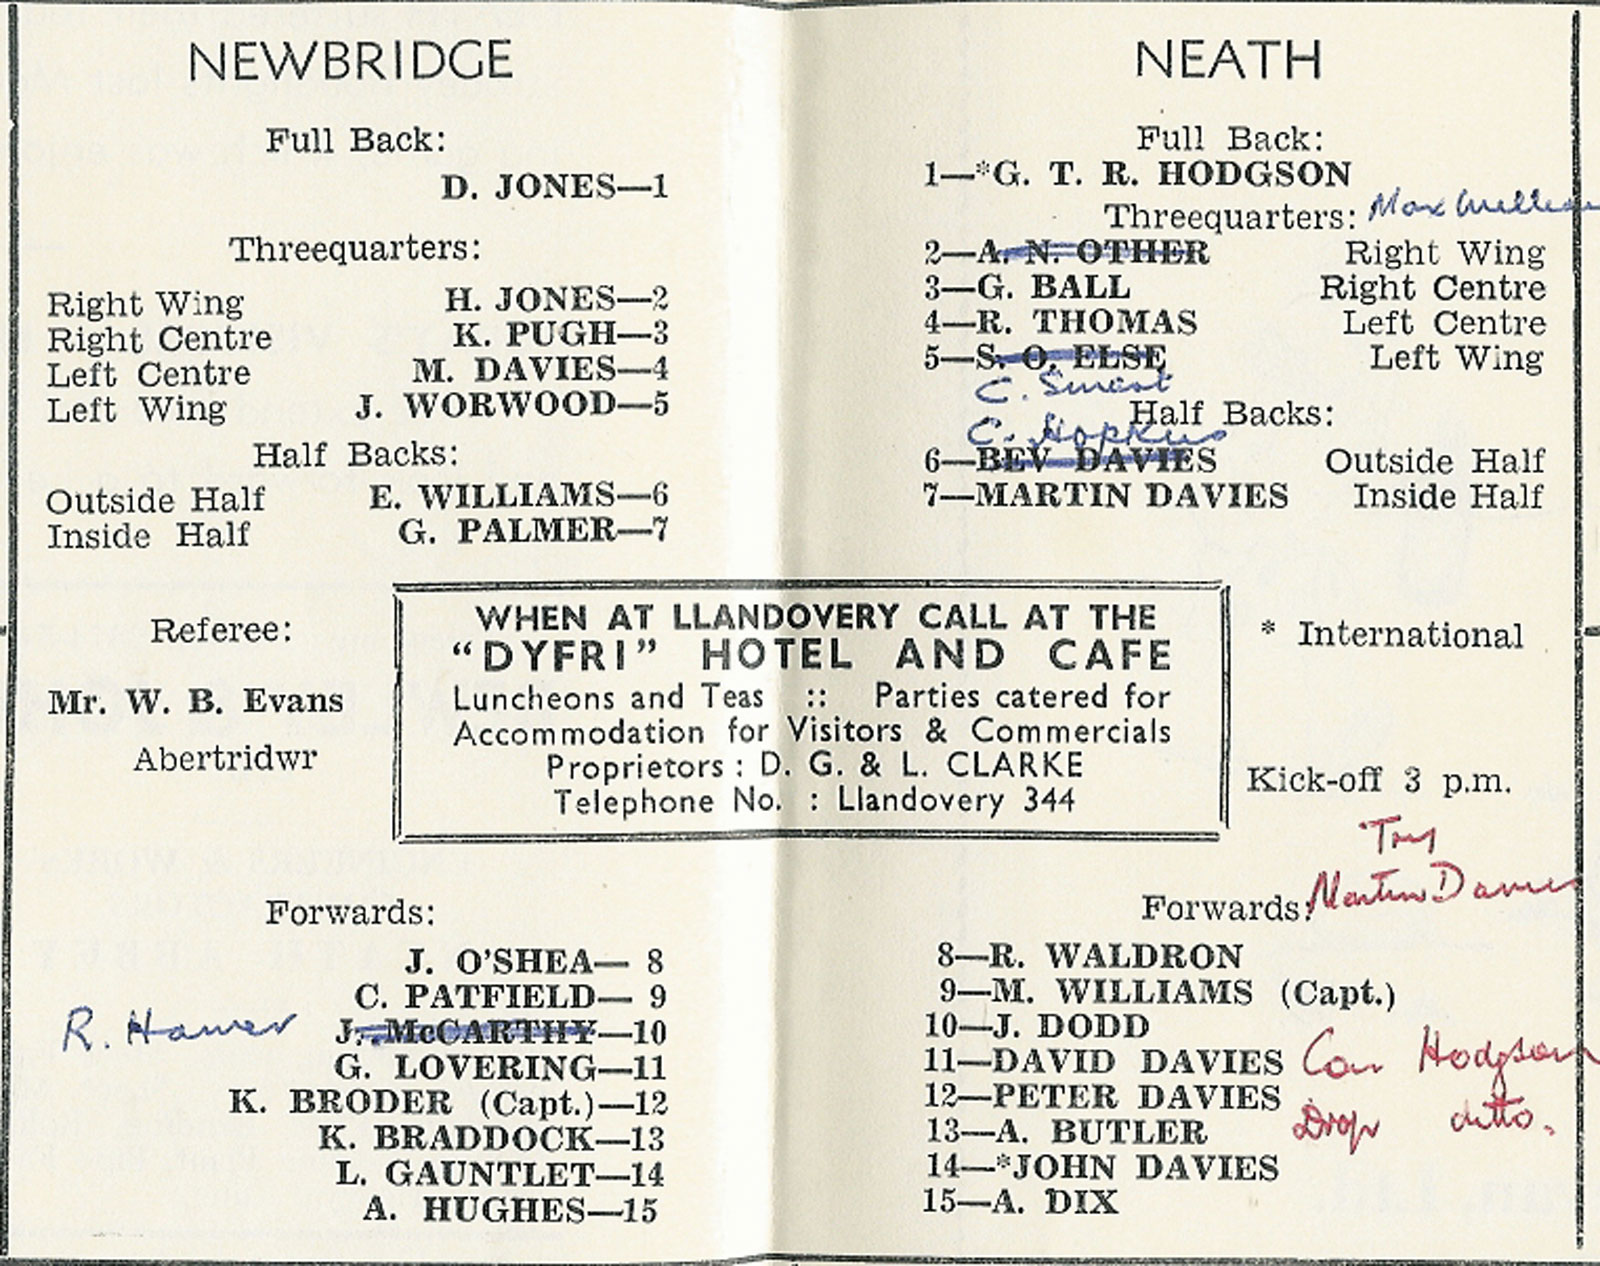 NEWBRIDGE
Full Back:
D. JONES—1
Threequarters:
Right Wing H. JONES—2
Right Centre K. PUGH—3
Left Centre M. DAVIES—4
Left Wing J. WORWOOD—5
Half Backs:
Outside Half E. WILLIAMS—6
Inside Half G. PALMER—7
NEATH
Full Back:
1—*G. T. R. HODGSON
Threequarters: Max
2—A. N. OTHER Right Wing
3—G. BALL Right Centre
4—R. THOMAS Left Centre
5—S. O. ELSE Left Wing
C.
Half Backs:
C. Hopkins
6—BEV DAVIES Outside Half
7—MARTIN DAVIES Inside Half
Referee:
Mr. W. B. Evans
Abertridwr
WHEN AT LLANDOVERY CALL AT THE
“DYFRI” HOTEL AND CAFE
Luncheons and Teas :: Parties catered for
Accommodation for Visitors & Commercials
Proprietors : D. G. & L. CLARKE
Telephone No. : Llandovery 344
* International
Kick-off 3 p.m.
Forwards:
J. O'SHEA— 8
C. PATFIELD— 9
R. J. McCARTHY—10
G. LOVERING—11
K. BRODER (Capt.)—12
K. BRADDOCK—13
L. GAUNTLET—14
A. HUGHES—15
Try
Martin Davies
Forwards:
8—R. WALDRON
9—M. WILLIAMS (Capt.)
10—J. DODD
11—DAVID DAVIES Con Hodgson
12—PETER DAVIES
13—A. BUTLER Drop ditto.
14—*JOHN DAVIES
15—A. DIX